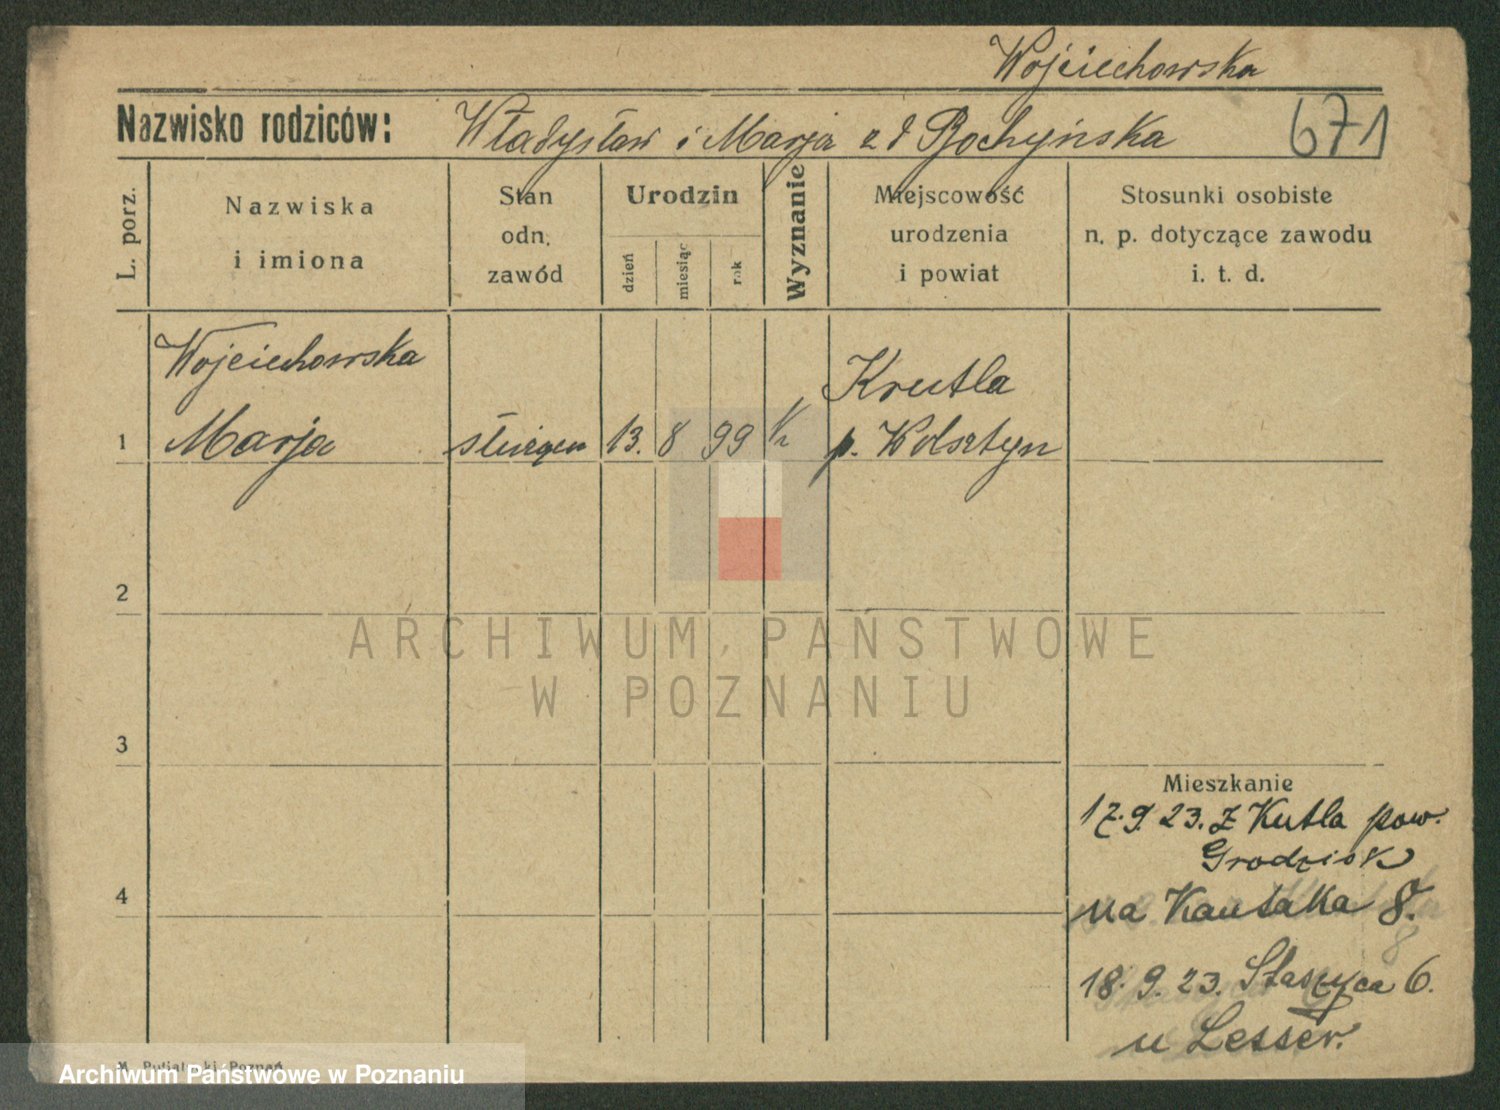 Wojciechowska
Nazwisko rodziców: Władysław i Marja z d Bochyńska 671
L. porz.
Nazwiska
i imiona
Stan
odn.
zawód
Urodzin
dzień
miesiąc
rok
Wyznanie
Miejscowość
urodzenia
i powiat
Stosunki osobiste
n. p. dotyczące zawodu
i. t. d.
Wojciechowska Krutla
1 Marja służąca 13. 8 99 p. Wolsztyn
2
ARCHIWUM PAŃSTWOWE
W POZNANIU
3
Mieszkanie
17.9.23. z Kutla pow.
Grodzisk
4
na Kantaka 8.
8
18.9.23. Staszyca 6.
u Lesser.
Poznań
Archiwum Państwowe w Poznaniu